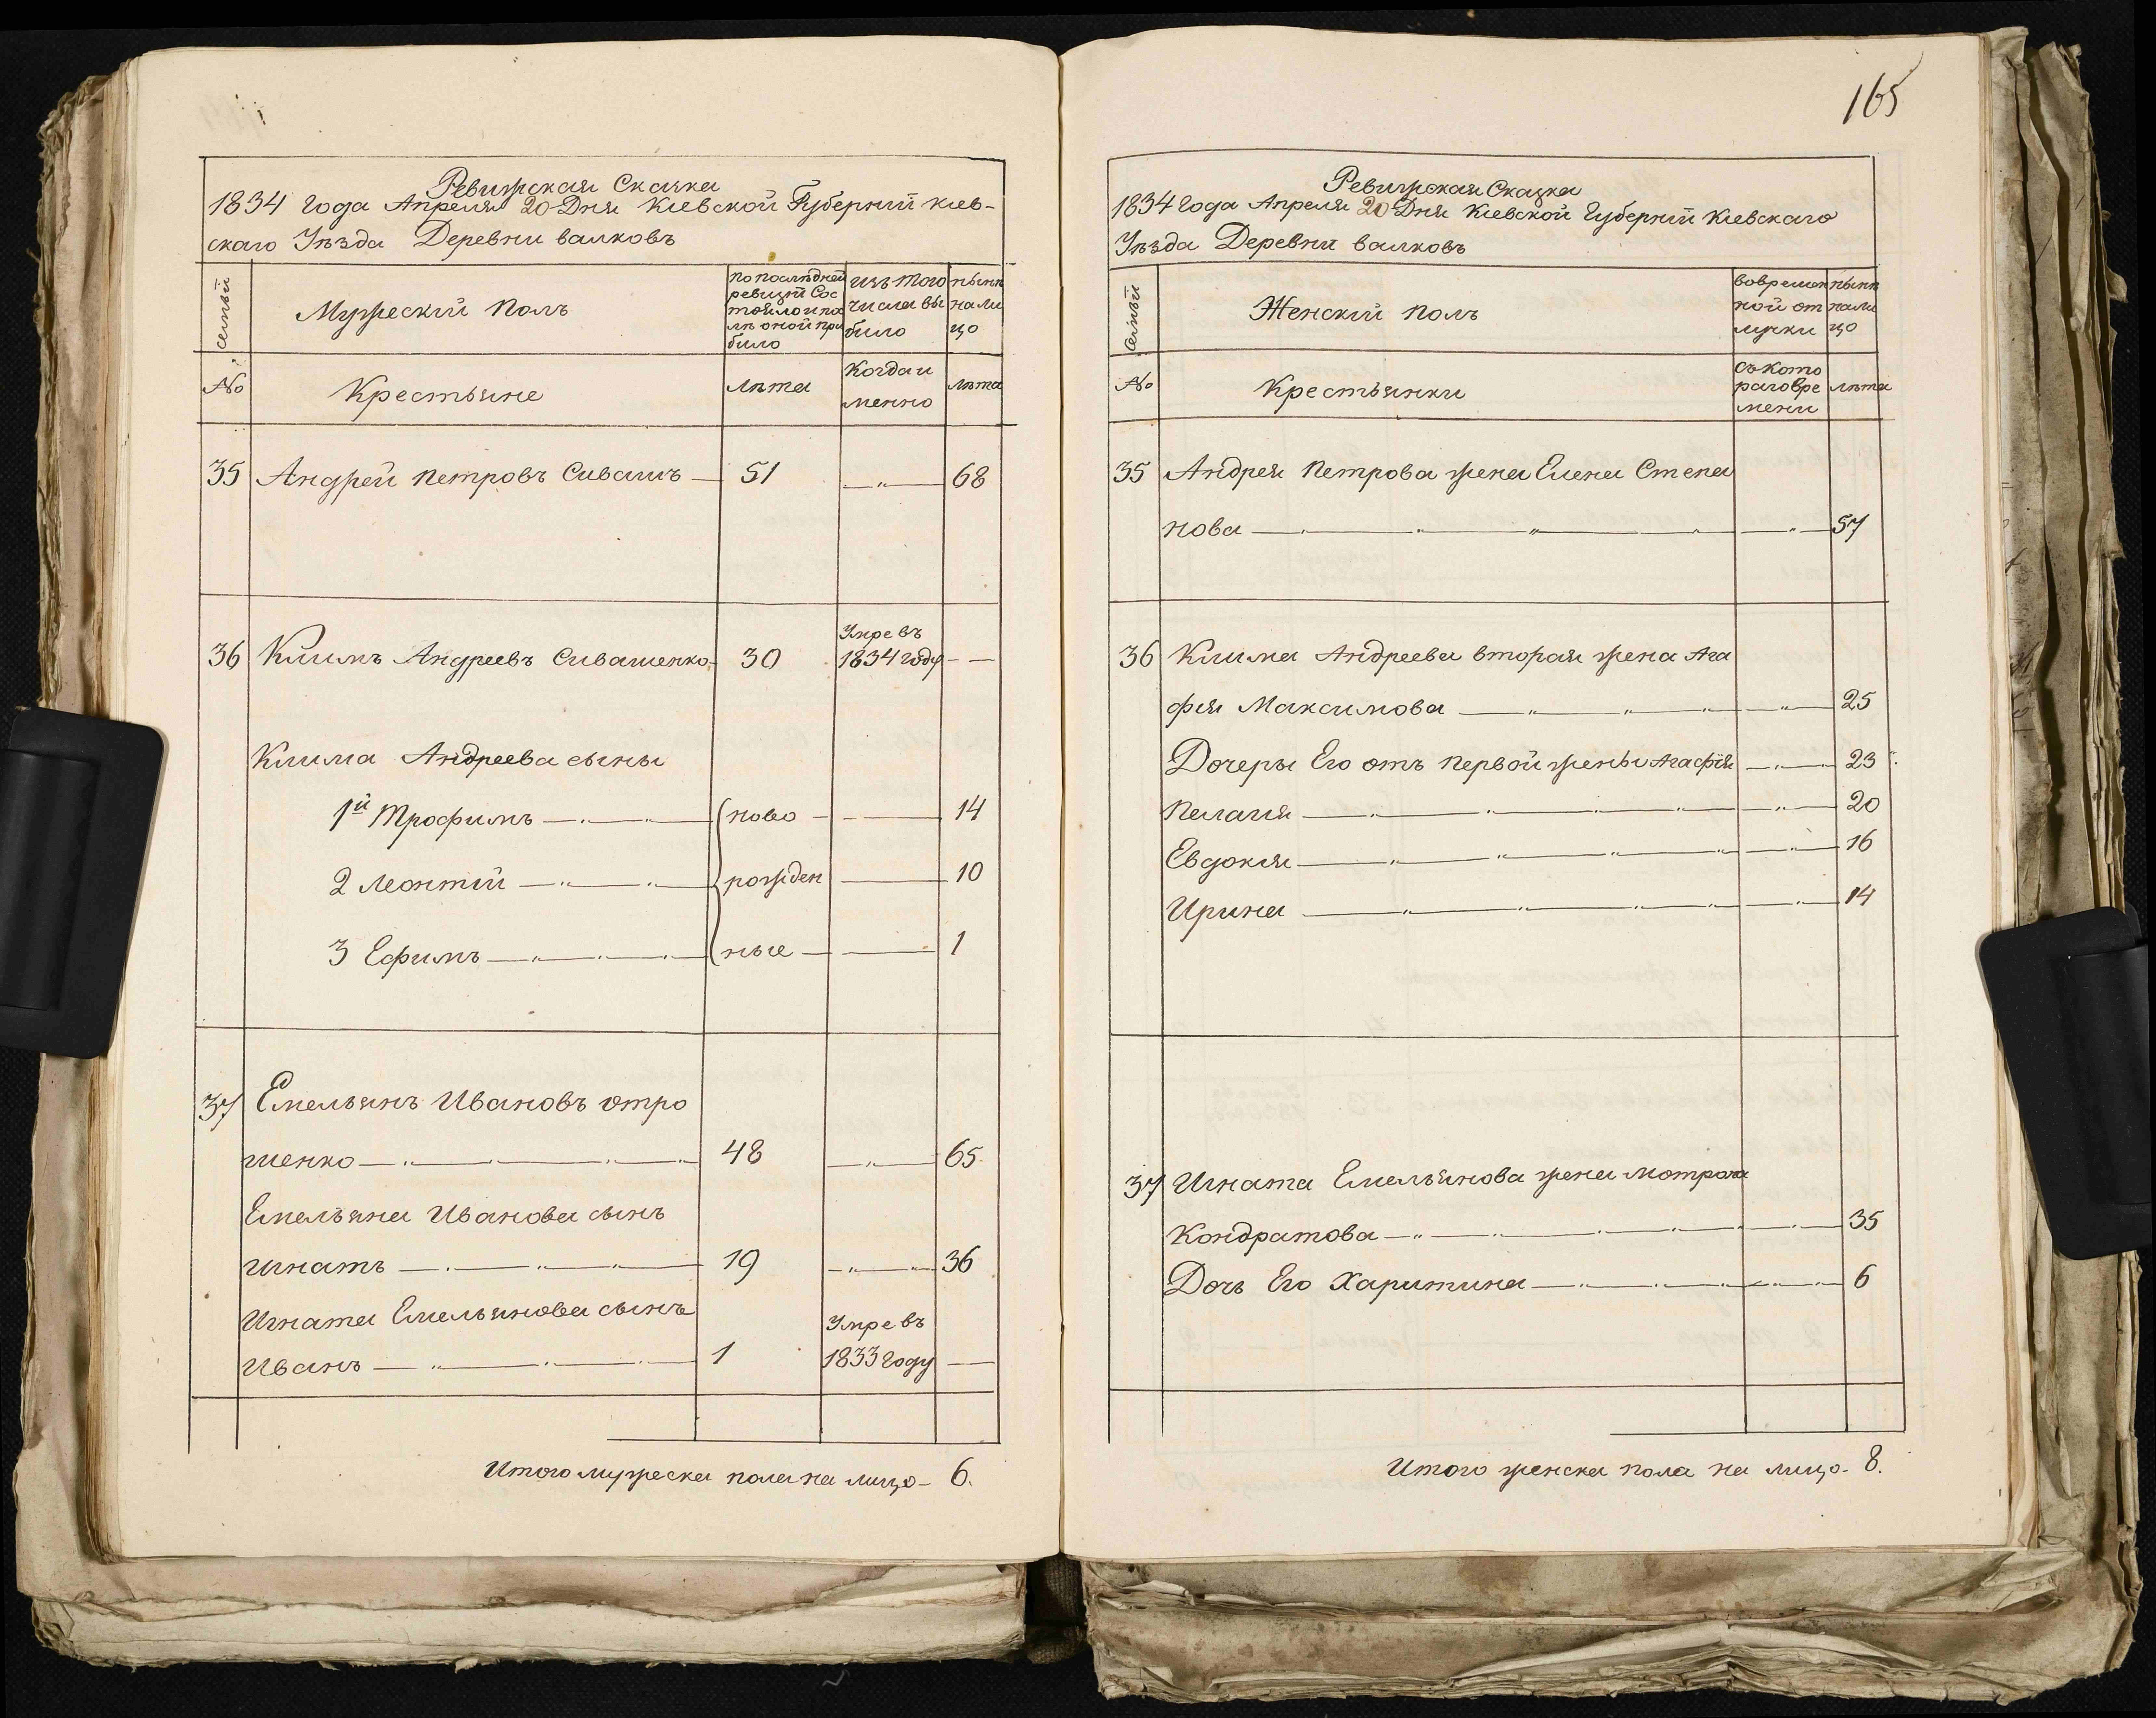 165
Ревизская Сказка
1834 года Апреля 20 Дня Киевской Губернии киев-
скаго Уѣзда Деревни валковъ
семьи
Мужеский Полъ
по последней
ревизии Сос
тояло и по
лѣ оной при
было
изъ того
числа вы
было
нынѣ
нали
цо
№
Крестьяне
лѣта
Когда и
менно
лѣта
35 Андрей Петровъ Сивашъ — 51 — 68
36 Климъ Андреевъ Сивашенко 30 Умре въ
1834 году — —
Клима Андреева сыны
1й Трофимъ — ново — 14
2 Леонтий — рожден — 10
3 Ефимъ — ные — 1
37 Емельянъ Ивановъ отро
шенко — 48 — 65
Емельяна Иванова сынъ
игнатъ — 19 — 36
Игната Емельянова сынъ
Иванъ — 1 Умре въ
1833 году —
Итого мужеска пола на лицо - 6.
Ревизская Сказка
1834 года Апреля 20 Дня Киевской Губернии Киевскаго
Уѣзда Деревни валковъ
Семьи
Женский полъ
вовремен
ной от
лучки
нынѣ
нали
цо
№
Крестьянки
съ кото
раго вре
мени
лѣта
35 Андрея Петрова жена Елена Степа
нова — 57
36 Клима Андреева вторая жена Ага
фия Максимова — 25
Дочеры Его отъ первой жены Агафия — 23
Пелагия — 20
Евдокия — 16
Ирина — 14
37 Игната Емельянова жена Мотрона
Кондратова — 35
Дочь Его Харитина — 6
Итого женска пола на лицо - 8.